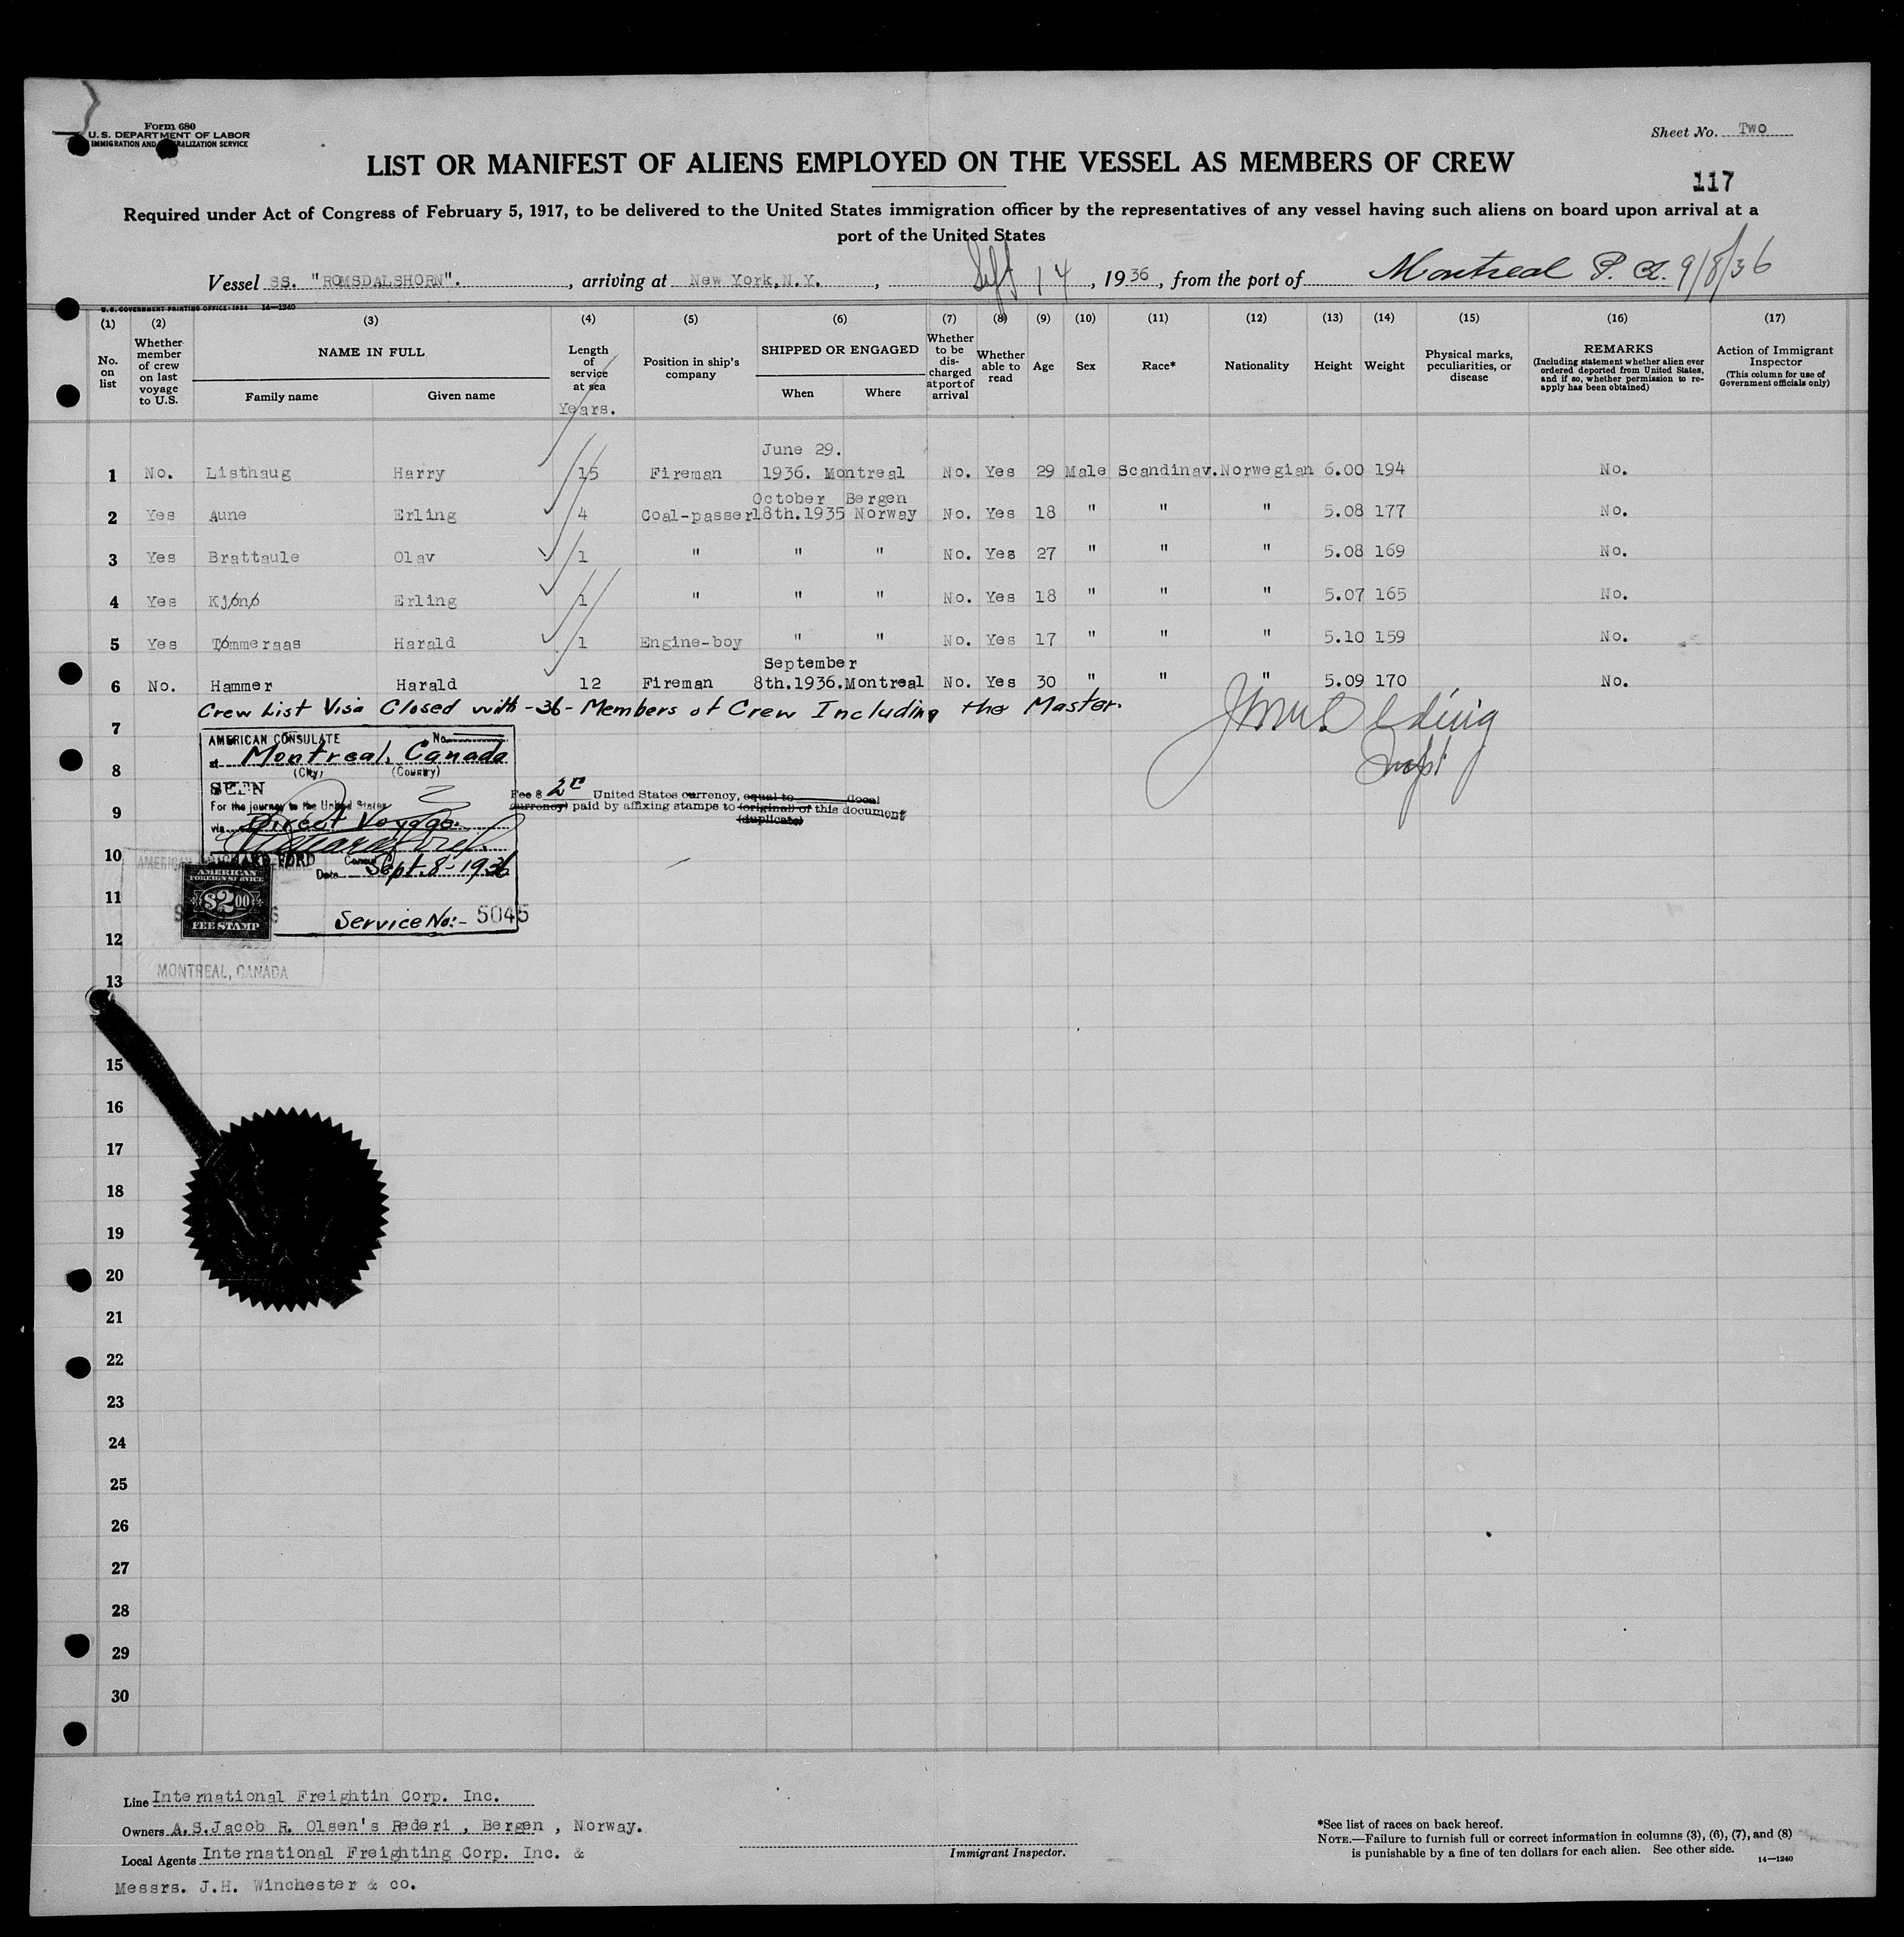 Form 680
U.S. DEPARTMENT OF LABOR
IMMIGRATION AND NATURALIZATION SERVICE
Sheet No. Two
LIST OR MANIFEST OF ALIENS EMPLOYED ON THE VESSEL AS MEMBERS OF CREW
117
Required under Act of Congress of February 5, 1917, to be delivered to the United States immigration officer by the representatives of any vessel having such aliens on board upon arrival at a
port of the United States
Vessel SS. "ROMSDALSHORN"., arriving at New York, N.Y., Sept 14, 1936, from the port of Montreal P.Q. 9/8/36
U.S. GOVERNMENT PRINTING OFFICE: 1934 14—1240
(1) (2) (3) (4) (5) (6) (7) (8) (9) (10) (11) (12) (13) (14) (15) (16) (17)
No. on list
Whether member of crew on last voyage to U.S.
NAME IN FULL
Family name Given name
Length of service at sea
Years.
Position in ship's company
SHIPPED OR ENGAGED
When Where
Whether to be discharged at port of arrival
Whether able to read
Age Sex Race* Nationality Height Weight
Physical marks, peculiarities, or disease
REMARKS
(Including statement whether alien ever ordered deported from United States, and if so, whether permission to reapply has been obtained)
Action of Immigrant Inspector
(This column for use of Government officials only)
June 29.
1 No. Listhaug Harry 15 Fireman 1936. Montreal No. Yes 29 Male Scandinav. Norwegian 6.00 194 No.
October Bergen
2 Yes Aune Erling 4 Coal-passer 18th.1935 Norway No. Yes 18 " " " 5.08 177 No.
3 Yes Brattaule Olav 1 " " " No. Yes 27 " " " 5.08 169 No.
4 Yes Kjønø Erling 1 " " " No. Yes 18 " " " 5.07 165 No.
5 Yes Tømmeraas Harald 1 Engine-boy " " No. Yes 17 " " " 5.10 159 No.
September
6 No. Hammer Harald 12 Fireman 8th.1936. Montreal No. Yes 30 " " " 5.09 170 No.
Crew List Visa Closed with -36- Members of Crew Including the Master.
7
AMERICAN CONSULATE No.
at Montreal, Canada
(City) (Country)
8
SEEN
For the journey to the United States
via Direct Voyage.
Fee $ 2.00 United States currency, equal to (local
currency) paid by affixing stamps to (original) of this document
(duplicate)
9
10
RICHARD FORD Consul
Date Sept. 8 - 1936
AMERICAN
FOREIGN SERVICE
$2.00
FEE STAMP
11
Service No:- 5045
12
MONTREAL, CANADA
13
15
16
17
18
19
20
21
22
23
24
25
26
27
28
29
30
Line International Freightin Corp. Inc.
Owners A.S.Jacob R. Olsen's Rederi , Bergen , Norway.
Local Agents International Freighting Corp. Inc. &
Messrs. J.H. Winchester & co.
Immigrant Inspector.
*See list of races on back hereof.
NOTE.—Failure to furnish full or correct information in columns (3), (6), (7), and (8)
is punishable by a fine of ten dollars for each alien. See other side.
14—1240